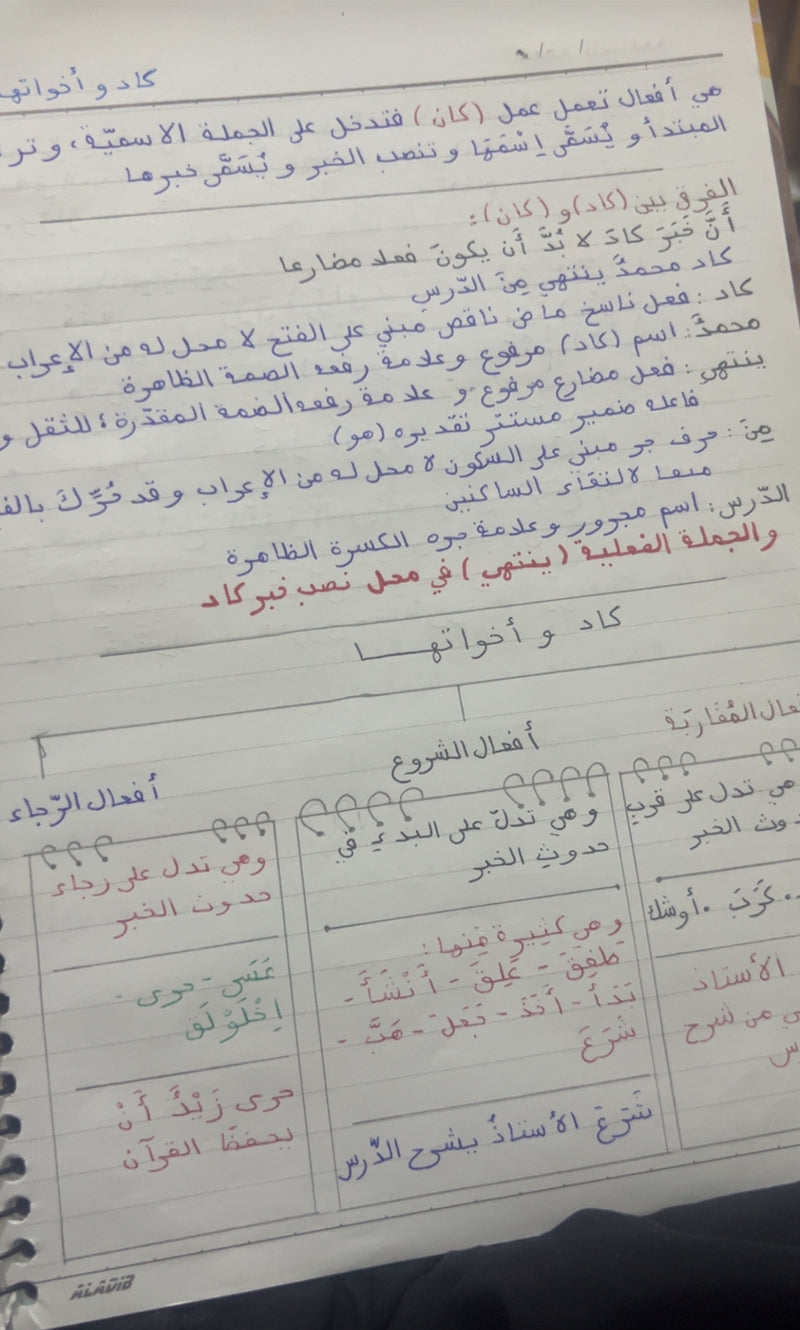 كاد و أخواتها
هي أفعال تعمل عمل (كان) فتدخل على الجملة الاسميّة، وتر
المبتدأ و يُسَمَّى اِسْمَهَا و تنصب الخبر و يُسَمَّى خبرها
الفرق بين (كاد) و (كان):
أَنَّ خَبَرَ كادَ لا بُدَّ أَن يكونَ فعلا مضارعا
كاد محمدٌ ينتهي مِنَ الدّرسِ
كاد: فعل ناسخ ماض ناقص مبني على الفتح لا محل له من الإعراب
محمدٌ: اسم (كاد) مرفوع وعلامة رفعه الضمة الظاهرة
ينتهي: فعل مضارع مرفوع و علامة رفعه الضمة المقدّرة للثقل و
فاعله ضمير مستتر تقديره (هو)
مِنَ: حرف جر مبني على السكون لا محل له من الإعراب و قد حُرِّكَ بالف
منعا لالتقاء الساكنين
الدّرس: اسم مجرور وعلامة جره الكسرة الظاهرة
والجملة الفعلية (ينتهي) في محل نصب خبر كاد
كاد و أخواتهـــا
عال المُقَارَبَة
هي تدل على قرب
دوث الخبر
كَرَبَ . أوشك
الأستاذ
ي من شرح
س
أفعال الشروع
وهي تدلّ على البدءِ في
حدوثِ الخبر
و هي كثيرة مِنها:
طَفِقَ - عَلِقَ - أَنْشَأَ -
بَدَأَ - أَخَذَ - جَعَلَ - هَبَّ -
شَرَعَ
شَرَعَ الأستاذُ يشرح الدّرس
أفعال الرّجاء
وهي تدل على رجاء
حدوث الخبر
عَسَى - حرى -
اِخْلَوْلَقَ
حرى زَيْدٌ أَنْ
يحفظَ القرآن
ALADIB